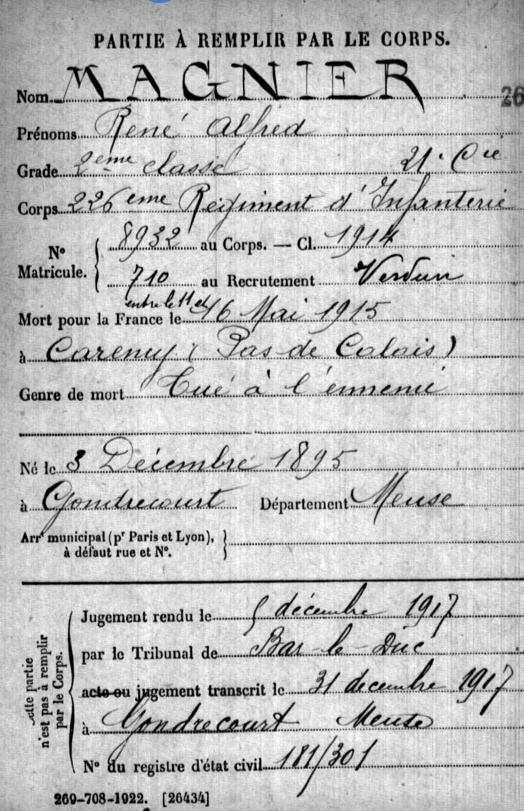 PARTIE À REMPLIR PAR LE CORPS.
Nom MAGNIER 26
Prénoms René Alfred
Grade 2ème classe 21e Cie
Corps 226eme Régiment d'Infanterie
N° Matricule. 8932 au Corps. — Cl. 1914
710 au Recrutement Verdun
entre le 11 et
Mort pour la France le 16 Mai 1915
à Carency (Pas de Calais)
Genre de mort Tué à l'ennemi
Né le 3 Décembre 1895
à Gondrecourt Département Meuse
Arrt municipal (pr Paris et Lyon),
à défaut rue et N°.
cette partie n'est pas à remplir par le Corps.
Jugement rendu le 5 décembre 1917
par le Tribunal de Bar-le-Duc
acte ou jugement transcrit le 31 décembre 1917
à Gondrecourt Meuse
N° du registre d'état civil 181/301
269-708-1922. [26434]